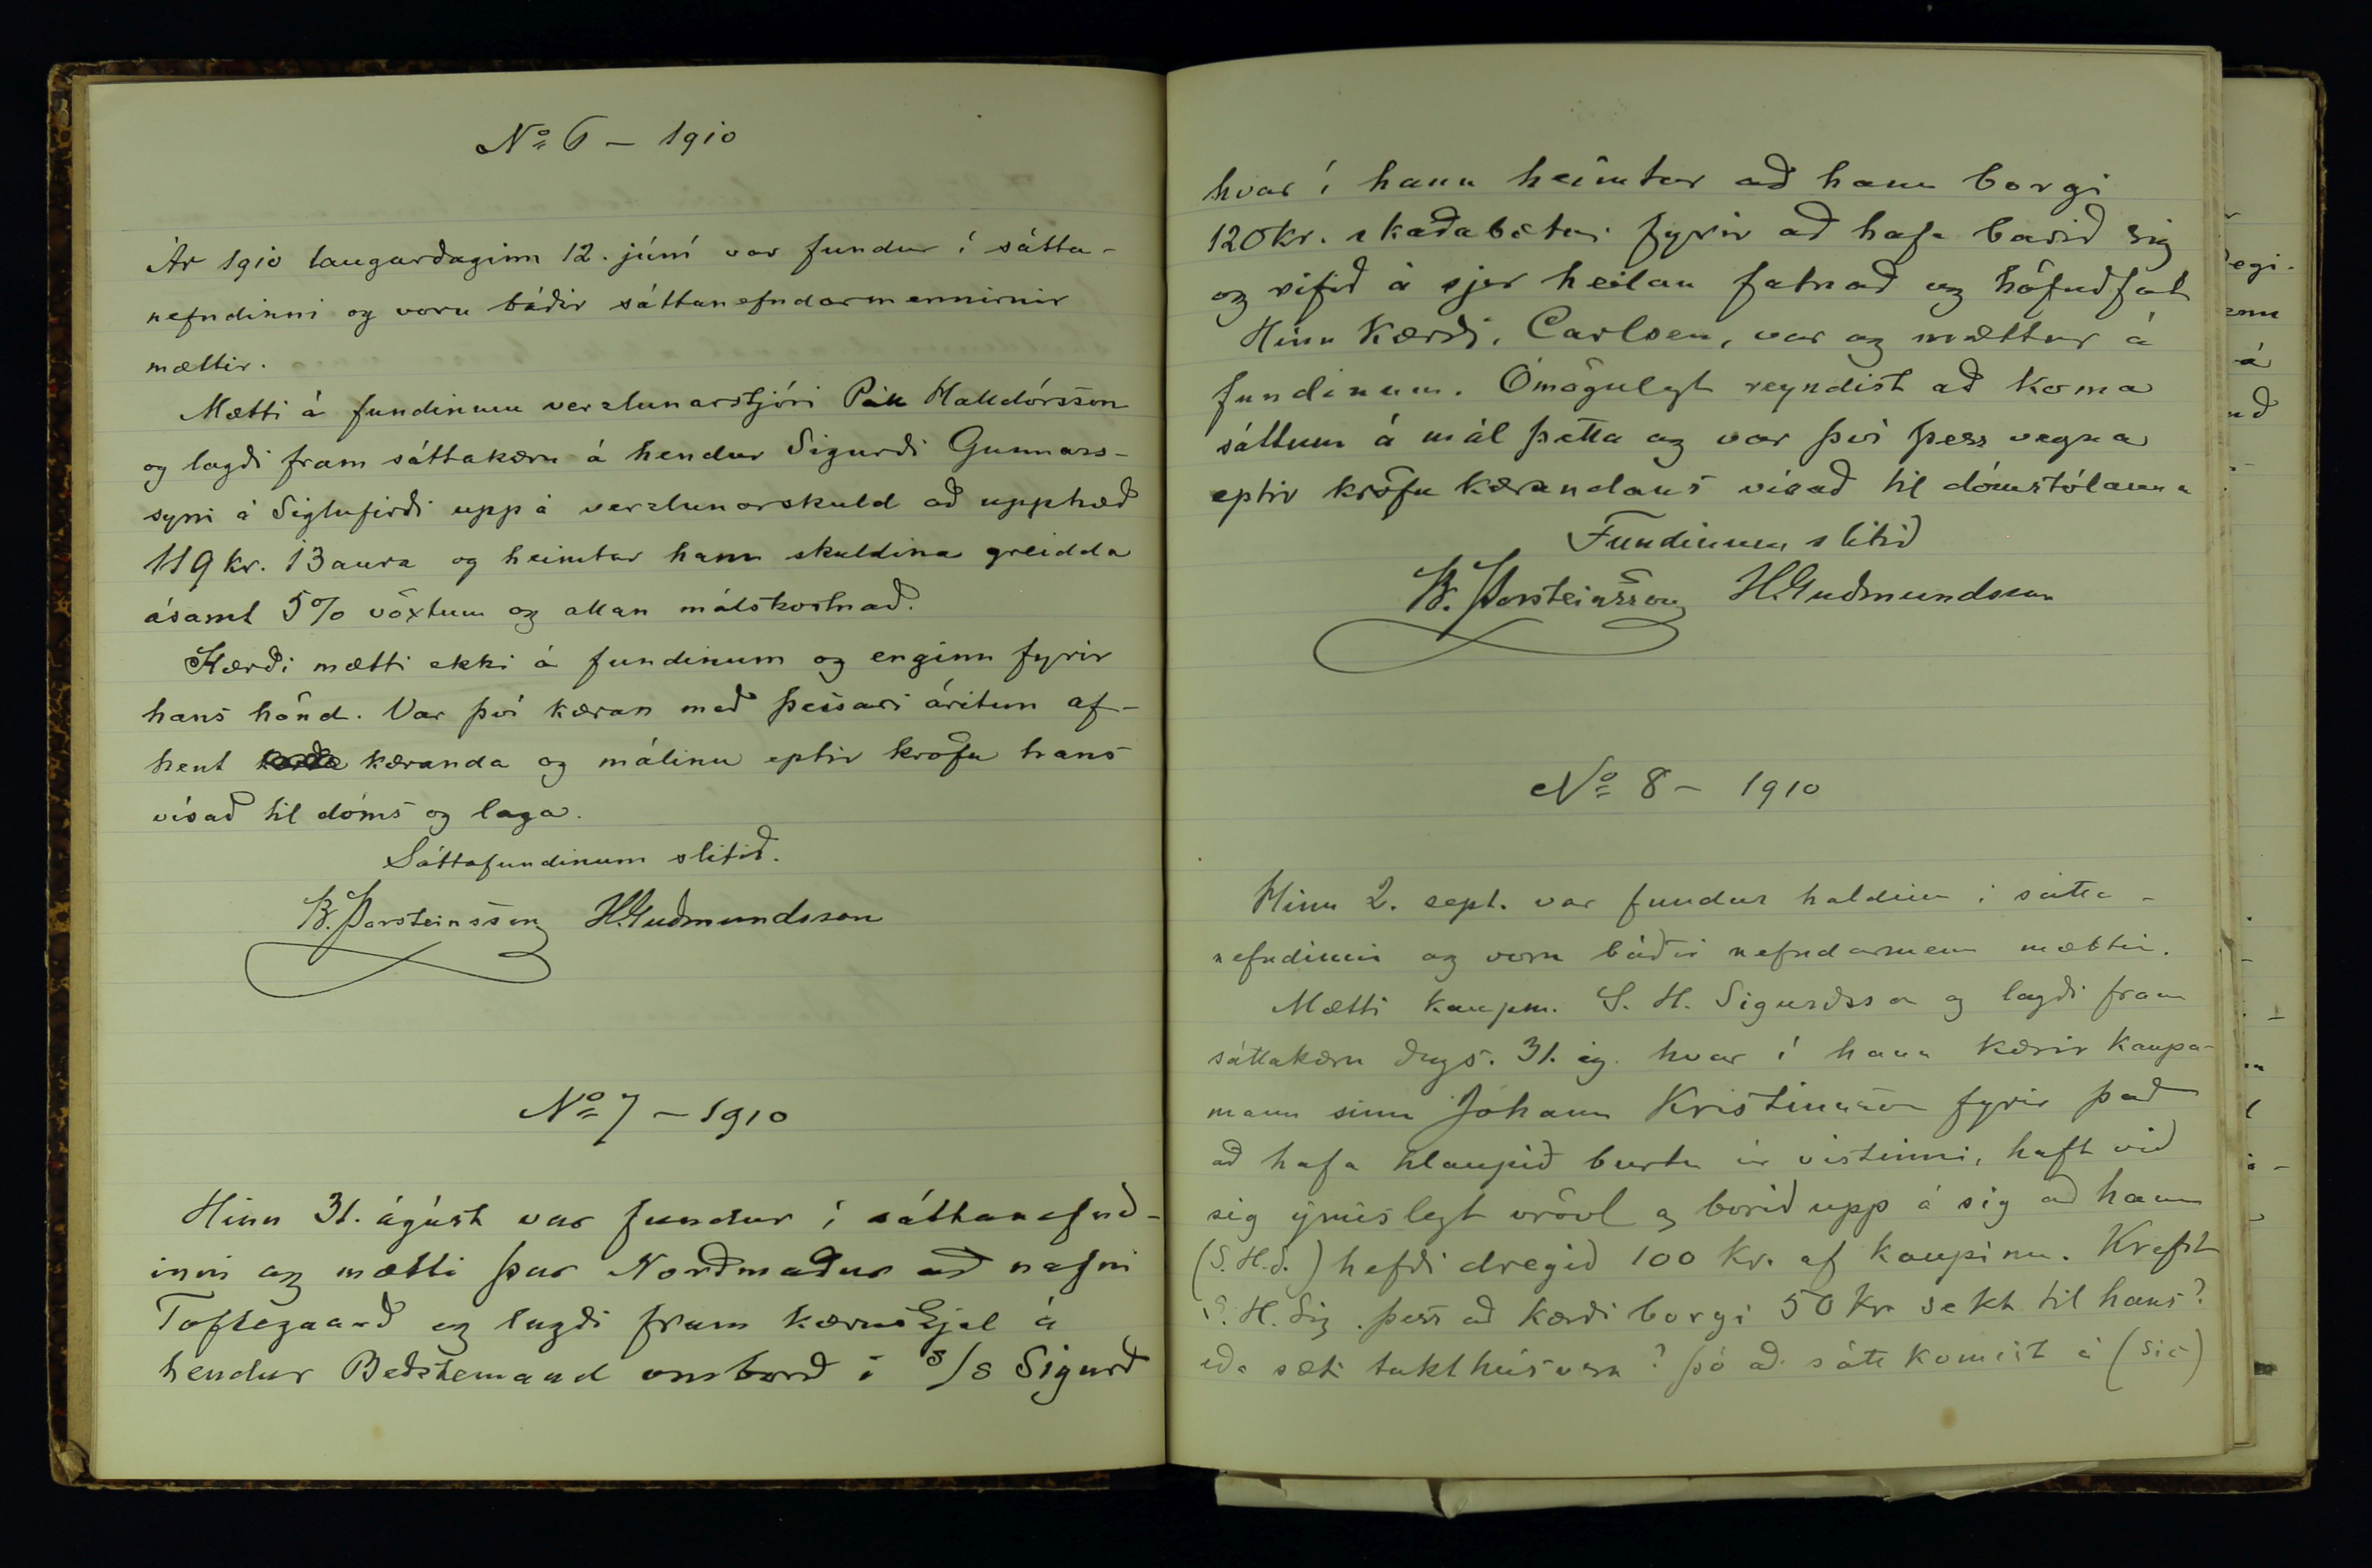 No 6 – 1910
Ár 1910 laugardaginn 12. júní var fundur í sátta-
nefndinni og voru báðir sáttanefndarmennirnir
mættir.
Mætti á fundinum verzlunarstjóri Páll Halldórsson
og lagði fram sáttakæru á hendur Sigurði Gunnars-
syni á Siglufirði upp á verzlunarskuld að upphæð
119 kr. 13 aura og heimtar hann skuldina greidda
ásamt 5% vöxtum og allan málskostnað.
Kærði mætti ekki á fundinum og enginn fyrir
hans hönd. Var því kæran með þessari áritun af-
hent kæranda og málinu eptir kröfu hans
vísað til dóms og laga.
Sáttafundinum slitið.
B. Þorsteinsson H. Guðmundsson
No 7 – 1910
Hinn 31. ágúst var fundur í sáttanefnd-
inni og mætti þar Norðmaður að nafni
Toftegaard og lagði fram kæruskjal á
hendur Bedstemand ombord í S/S Sigurd
hvar í hann heimtar að hann borgi
120 kr. skaðabætur fyrir að hafa barið sig
og rifið á sjer heilan fatnað og höfuðfat
Hinn kærði, Carlsen, var og mættur á
fundinum. Ómögulegt reyndist að koma
sáttum á mál þetta og var því þess vegna
eptir kröfu kærandans vísað til dómstólanna
Fundinum slitið
B. Þorsteinsson H. Guðmundsson
No 8 – 1910
Hinn 2. sept. var fundur haldinn í sátta-
nefndinni og voru báðir nefndarmenn mættir.
Mætti kaupm. S. H. Sigurðsson og lagði fram
sáttakæru dags. 31. ág. hvar í hann kærir kaupa-
mann sinn Jóhann Kristinsson fyrir það
að hafa hlaupið burtu úr vistinni, haft við
sig ýmislegt og borið upp á sig að hann
(S.H.S.) hefði dregið 100 kr. af kaupinu. Krefst
S. H. Sig. þess að kærði borgi 50 kr sekt til hans?
eða sæti tukthúsveru? þó að sátt komist á (sic)